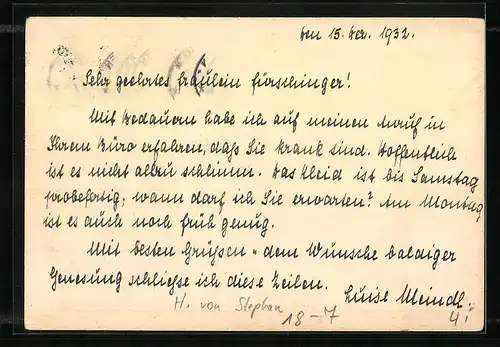 den 15. Dez. 1932.
Sehr geehrtes Fräulein Fürschinger!
Mit Bedauern habe ich auf meinen Anruf in
Ihrem Büro erfahren, daß Sie krank sind. Hoffentlich
ist es nicht allzu schlimm. Das Kleid ist bis Samstag
probefertig; wann darf ich Sie erwarten? Am Montag
ist es auch noch früh genug.
Mit besten Grüßen u. dem Wunsche baldiger
Genesung schließe ich diese Zeilen.
Luise Meindl.
H. von Stephan
18-7
4.-